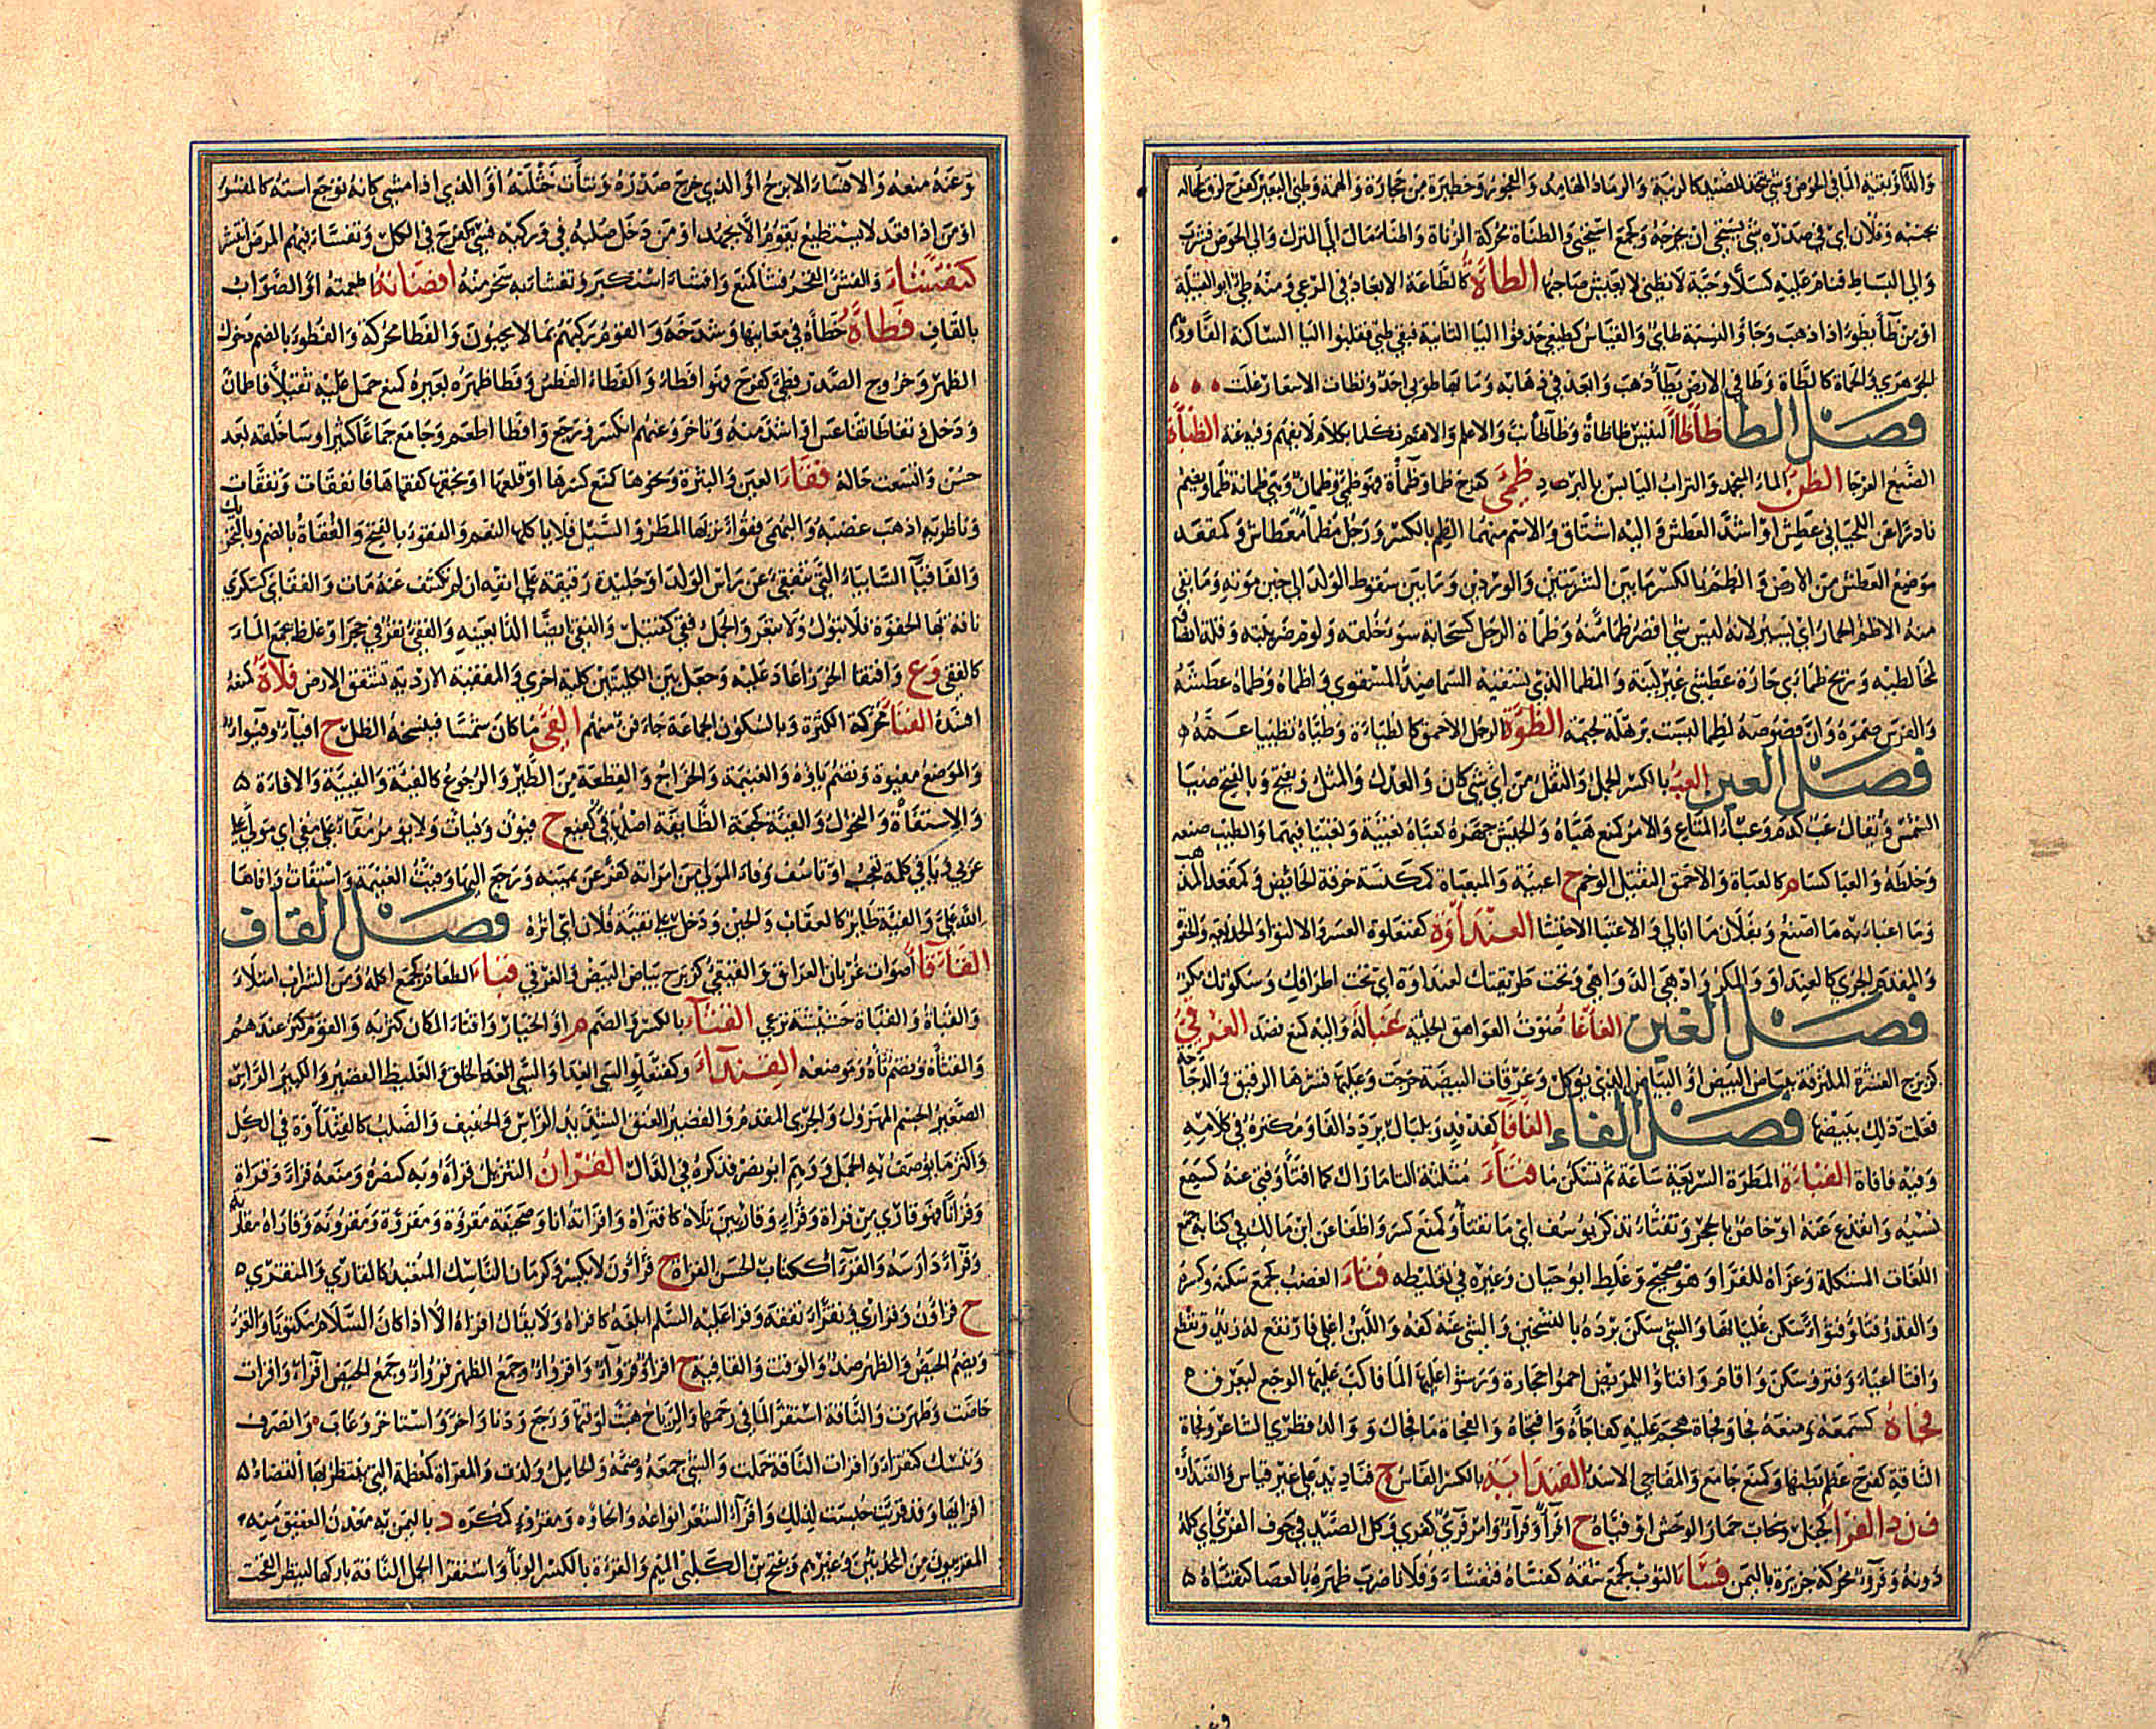 والداء وبقية الماء في الحوض وشيء يتخذ للصيد كالربية والرماد الهامد والفجور وحظيرة من حجارة والهمة وطنئ البعير كفرح لزق طحاله
بجنبه وفلان اي في صدره شيء يستحيي ان يخرجه وكجمع استحيى والطنأة محركة الزناة والطناء مال الى الترك والى الحوض فشرب
والى البساط فنام عليه كسلا وحية لا تطني لا يعيش صاحبها الطاءة كالطاعة الابعاد في المرعى ومنه طيء ابو القبيلة
او من طاء يطوء اذا ذهب وجاء والنسبة طائي والقياس كطيعي حذفوا الياء الثانية فبقي طيئي فقلبوا الياء الساكنة الفا ووهم
الجوهري والحماة كالطاة وطاء في الارض يطاء ذهب وابعد في ذهابه وما بها طوئي احد وتطاءت الاسعار غلت
فصل الظا ظاظا التيس ظاظاة وظاظاء نب والاعلم والاهتم تكلما بكلام لا يفهم وفيه غنة الظباة
الضبع العرجا الظرء الماء المتجمد والتراب اليابس بالبرد ظمئ كفرح ظما وظماة فهو ظمئ وظمان وهي ظمانة ظماء ويضم
نادرا عن اللحياني عطش او اشد العطش واليه اشتاق والاسم منهما الظمء بالكسر ورجل مظماء معطاش وكمقعد
موضع العطش من الارض والظمء بالكسر ما بين الشربتين والوردين وما بين سقوط الولد الى حين موته وما بقي
منه الا ظمء الحمار اي يسير لانه ليس شيء اقصر ظما منه وظماة الرجل كسحابة سوء خلقه ولوم ضريبته وقلة انصافه
لمخالطيه وريح ظمأى حارة عطشى غير لينة والمظمئي الذي تسقيه السماء ضد المسقوي واظماه وظماه عطشه
والفرس ضمره وان فصوصه لظماء ليست برهلة لحيمة الظوة الرجل الاحمق كالظياءة وظياه تظييا غمه
فصل العين العبء بالكسر الحمل والثقل من اي شيء كان والعدل والمثل ويفتح وبالفتح ضياء
الشمس ويقال عب كدم وعبا المتاع والامر كمنع هياه والجيش جهزه كعباه تعبية وتعبيا فيهما والطيب صنعه
وخلطه والعباء كساء م كالعباة والاحمق الثقيل الوخم ج اعبية والمعباة كمكنسة خرقة الحائض وكمقعد المذهب
وما اعبا به ما اصنع وبفلان ما ابالي والاعتباء الاحتشاء العنداوة كفنعلوة العسر والالتواء والخديعة والجفوة
والمقدم الجري كالعنداو والمكر وادهى الدواهي وتحت طريقتك لعنداوة اي تحت اطراقك وسكوتك مكر
فصل الغين الغاغا صوت العواهق الجبلية غبا له واليه كمنع قصد الغرقئ
كزبرج القشرة الملتزقة ببياض البيض او البياض الذي يوكل وغرقات البيضة خرجت وعليها قشرها الرقيق والدجاجة
فعلت ذلك ببيضها فصل الفاء الفافا كفدفد وبلبال مردد الفاء ومكثره في كلامه
وفيه فافاة الفباءة المطرة السريعة ساعة ثم تسكن ما فتا مثلثة التاء ما زال كما افتا وفتئ عنه كسمع
نسيه وانقذع عنه او خاص بالجحد وتفتا تذكر يوسف اي ما تفتا وكمنع كسر واطفا عن ابن مالك في كتابه جمع
اللغات المشكلة وعزاه للفرا وهو صحيح وغلط ابو حيان وغيره في تغليطه فثا الغضب كجمع سكنه وكسره
والقدر فثا وفثوءا سكن غليانها والشيء سكن برده بالتسخين والشيء عنه كفه واللبن اغلي فارتفع له زبد وتقطع
وافثا اعيا وفتر وسكن واقام وافثاوا للمريض احموا حجارة ورشوا عليها الماء فاكب عليها الوجع ليعرق
فجاه كسمعه ومنعه فجا وفجاة هجم عليه كفاجاه وافتجاه والفجاة ما فاجاك ووالد قطري الشاعر وفجئت
الناقة كفرح عظم بطنها وكمنع جامع والمفاجئ الاسد الفنداية بالكسر الفاس ج فناديد على غير قياس والفنداة
ف ن د الفرا كجبل وسحاب حمار الوحش او فتيه ج افراء وفراء وامر فري كفري وكل الصيد في جوف الفرا اي كله
دونه وفرا محركة جزيرة باليمن فسا الثوب كجمع شقه كفساه فتفسا وفلانا ضرب ظهره بالعصا كتفساه
وعنه منعه والافسا الابزخ او الذي خرج صدره ونتات خثلته او الذي اذا مشى كانه يرجع استه كالمفسوء
او من اذا قعد لا يستطيع يقوم الا بجهد او من دخل صلبه في وركيه فسئ كفرح في الكل وتفسا فيهم المرض انتشر
كتفشا والفشء الفخر فشا كمنع وافشا استكبر وتفشا به سخر منه افصاته اطعمته او الصواب
بالقاف فطاه حطاه في معانيها وشدخه والقوم ركبهم بما لا يحبون والفطا محركة والفطوة بالضم دخول
الظهر وخروج الصدر فطئ كفرح فهو افطا وافطاء الفطس وفطا ظهر بعيره كمنع حمل عليه ثقيلا فاطمان
ودخل وتفاطا تقاعس او اشد منه وتاخر وعنهم انكسر ورجع وافطا اطعم وجامع جماعا كثيرا وساء خلقه بعد
حسن واتسعت حاله فقا العين والبثرة ونحوهما كمنع كسرها او قلعها او بخقها كفقاها فانفقات وتفقات
وناظريه اذهب غضبه والبهمى فقوءا تربها المطر والسيل فلا ياكلها النعم والفقوء بالفتح والفقاة بالضم وبالتحريك
والفاقياء السابياء التي تنفقئ عن راس الولد او جليدة رقيقة على انفه ان لم تكشف عنه مات والفقاى كسكرى
ناقة بها الحقوة فلا تبول ولا تبعر والجمل فقئ كقتيل والفقئ ايضا الداء بعينه والفقء نقر في حجر او غلظ يجمع الماء
كالفقئ وع وافتقا الخرز اعاد عليه وجعل بين الكلبتين كلبة اخرى والمفقئة الاودية تشق الارض فلاه كمنعه
افسده الفنا محركة الكثرة وبالسكون الجماعة جاء فنء منهم الفيء ما كان شمسا فينسخه الظل ج افياء وفيوء
والموضع مفيوة وتضم ياؤه والغنيمة والخراج والقطعة من الطير والرجوع كالفيئة والفيئة والافاءة
والاستفاءة والتحول والفية كجعة الطائفة اصلها فيء كفيع ج فئون وفئات ولا يومر مفاء على مفئ اي مولى على
عربي ويا فيء كلمة تعجب او تاسف وفاء المولي من امراته كفر عن يمينه ورجع اليها وفئت الغنيمة واستفات وافاها
الله علي والفية طائر كالعقاب والحين ودخل على تفيئة فلان اي اثره فصل القاف
القاقا اصوات غربان العراق والقيقئ كزبرج بياض البيض والغرقئ قبا الطعام كجمع اكله ومن الشراب امتلا
والقباة والقباة حشيشة ترعى القثاء بالكسر والضم م او الخيار واقثا المكان كثر به والقوم كثر عندهم
والمقثاة وتضم ثاؤه موضعه القنداو وكفنعلو السيئ الغذاء والسيئ الخلق والغليظ القصير والكبير الراس
الصغير الجسم المهزول والجرئ المقدم والقصير العنق الشديد الراس والخفيف والصلب كالقنداوة في الكل
واكثر ما يوصف به الجمل ووهم ابو نصر فذكره في الدال القران التنزيل قراه وبه كنصره ومنعه قرءا وقراءة
وقرانا فهو قارئ من قراة وقراء وقارئين تلاه كاقتراه واقراته انا وصحيفة مقروة ومقروة ومقرية وقاراه مقاراة
وقراء دارسه والقراء ككتان الحسن القراة ج قراءون لا يكسر وكرمان الناسك المتعبد كالقارئ والمتقرئ
ج قراءون وقوارئ وتقرا تفقه وقرا عليه السلام ابلغه كاقراه ولا يقال اقراه الا اذا كان السلام مكتوبا والقرء
ويضم الحيض والطهر ضد والوقت والقافية ج اقراء وقروء واقرؤ وجمع الطهر قروء وجمع الحيض اقراء واقرات
حاضت وطهرت والناقة استقر الماء في رحمها والرياح هبت لوقتها ورجع ودنا واخر واستاخر وغاب وانصرف
وتنسك كتقرا وقرات الناقة حملت والشيء جمعه وضمه والحامل ولدت والمقراة كمعظمة التي ينتظر بها انقضاء
اقرائها وقد قرئت حبست لذلك واقراء الشعر انواعه وانحاؤه ومقرا كمكرم د باليمن به معدن العقيق منه
المقرئيون من المحدثين وغيرهم وفتح ابن الكلبي الميم والقرة بالكسر الوبا واستقرا الجمل الناقة تاركها لينظر القحت